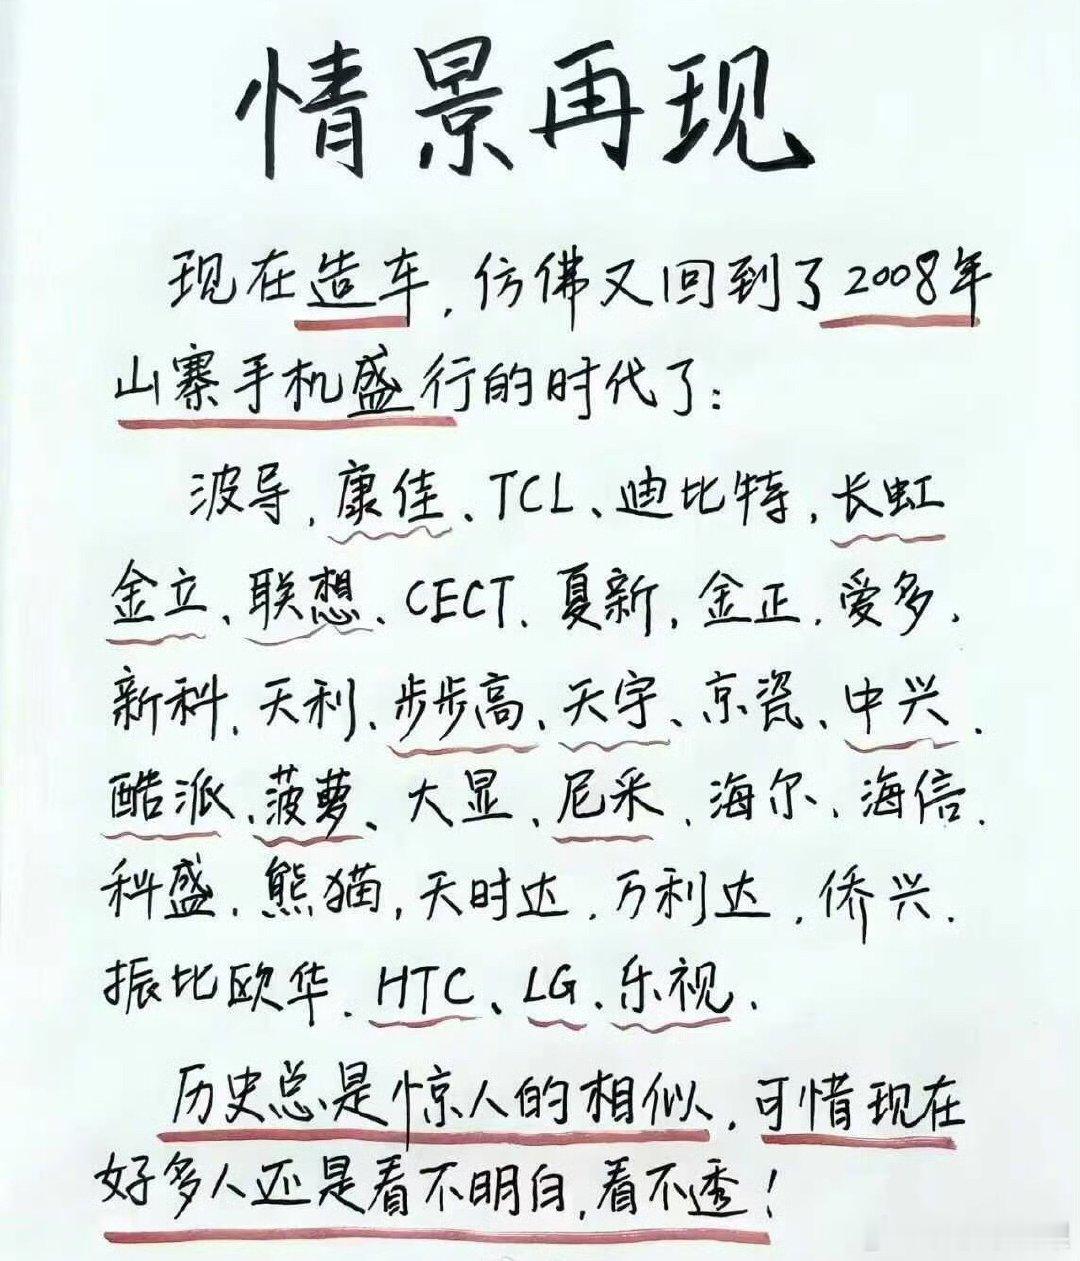 情景再现
现在造车,仿佛又回到了2008年
山寨手机盛行的时代了:
波导,康佳、TCL、迪比特,长虹
金立、联想、CECT、夏新,金正,爱多,
新科、天利、步步高、天宇、京瓷、中兴、
酷派、菠萝、大显、尼采、海尔、海信、
科盛、熊猫,天时达,万利达,侨兴、
振比欧华、HTC、LG、乐视、
历史总是惊人的相似,可惜现在
好多人还是看不明白,看不透!